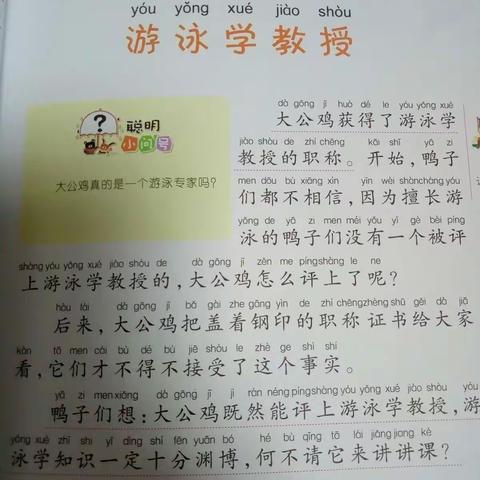 yóu yǒng xué jiào shòu
游泳学教授
聪明
小问号
大公鸡真的是一个游泳专家吗?
dà gōng jī huò dé le yóu yǒng xué
大公鸡获得了游泳学
jiào shòu de zhí chēng kāi shǐ yā zi
教授的职称。开始,鸭子
men dōu bù xiāng xìn yīn wèi shàn cháng yóu
们都不相信,因为擅长游
yǒng de yā zi men méi yǒu yí gè bèi píng
泳的鸭子们没有一个被评
shàng yóu yǒng xué jiào shòu de dà gōng jī zěn me píng shàng le ne
上游泳学教授的,大公鸡怎么评上了呢?
hòu lái dà gōng jī bǎ gài zhe gāng yìn de zhí chēng zhèng shū gěi dà jiā
后来,大公鸡把盖着钢印的职称证书给大家
kàn tā men cái bù dé bù jiē shòu le zhè ge shì shí
看,它们才不得不接受了这个事实。
yā zi men xiǎng dà gōng jī jì rán néng píng shàng yóu yǒng xué jiào shòu yóu
鸭子们想:大公鸡既然能评上游泳学教授,游
yǒng xué zhī shi yí dìng shí fēn yuān bó hé bù qǐng tā lái jiǎng jiang kè
泳学知识一定十分渊博,何不请它来讲讲课?